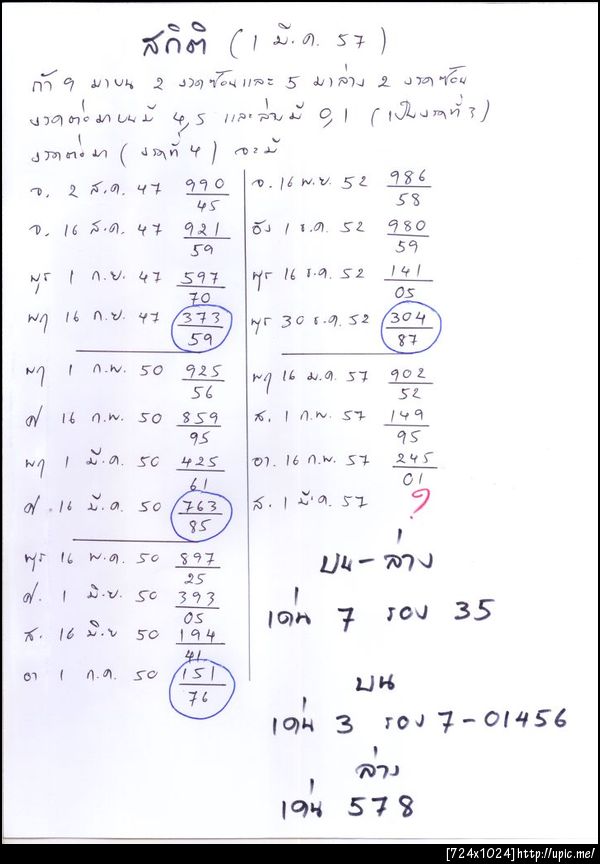 สถิติ (1 มี.ค. 57)
ถ้า 9 มาบน 2 งวดซ้อนและ 5 มาล่าง 2 งวดซ้อน
งวดต่อมาบนมี 4,5 และล่างมี 0,1 (เป็นงวดที่ 3)
งวดต่อมา (งวดที่ 4) จะมี
จ. 2 ส.ค. 47 990
45
จ. 16 ส.ค. 47 921
59
พุธ 1 ก.ย. 47 597
70
พฤ 16 ก.ย. 47 373
59
พฤ 1 ก.พ. 50 925
56
ศ 16 ก.พ. 50 859
95
พฤ 1 มี.ค. 50 425
61
ศ. 16 มี.ค. 50 763
85
พุธ 16 พ.ค. 50 897
25
ศ. 1 มิ.ย. 50 393
05
ส. 16 มิ.ย 50 194
41
อา 1 ก.ค. 50 151
76
จ. 16 พ.ย. 52 986
58
อัง 1 ธ.ค. 52 980
59
พุธ 16 ธ.ค. 52 141
05
พุธ 30 ธ.ค. 52 304
87
พฤ 16 ม.ค. 57 902
52
ส. 1 ก.พ. 57 149
95
อา. 16 ก.พ. 57 245
01
ส. 1 มี.ค. 57 ?
บน-ล่าง
เด่น 7 รอง 35
บน
เด่น 3 รอง 7-01456
ล่าง
เด่น 578
[724x1024]http://upic.me/